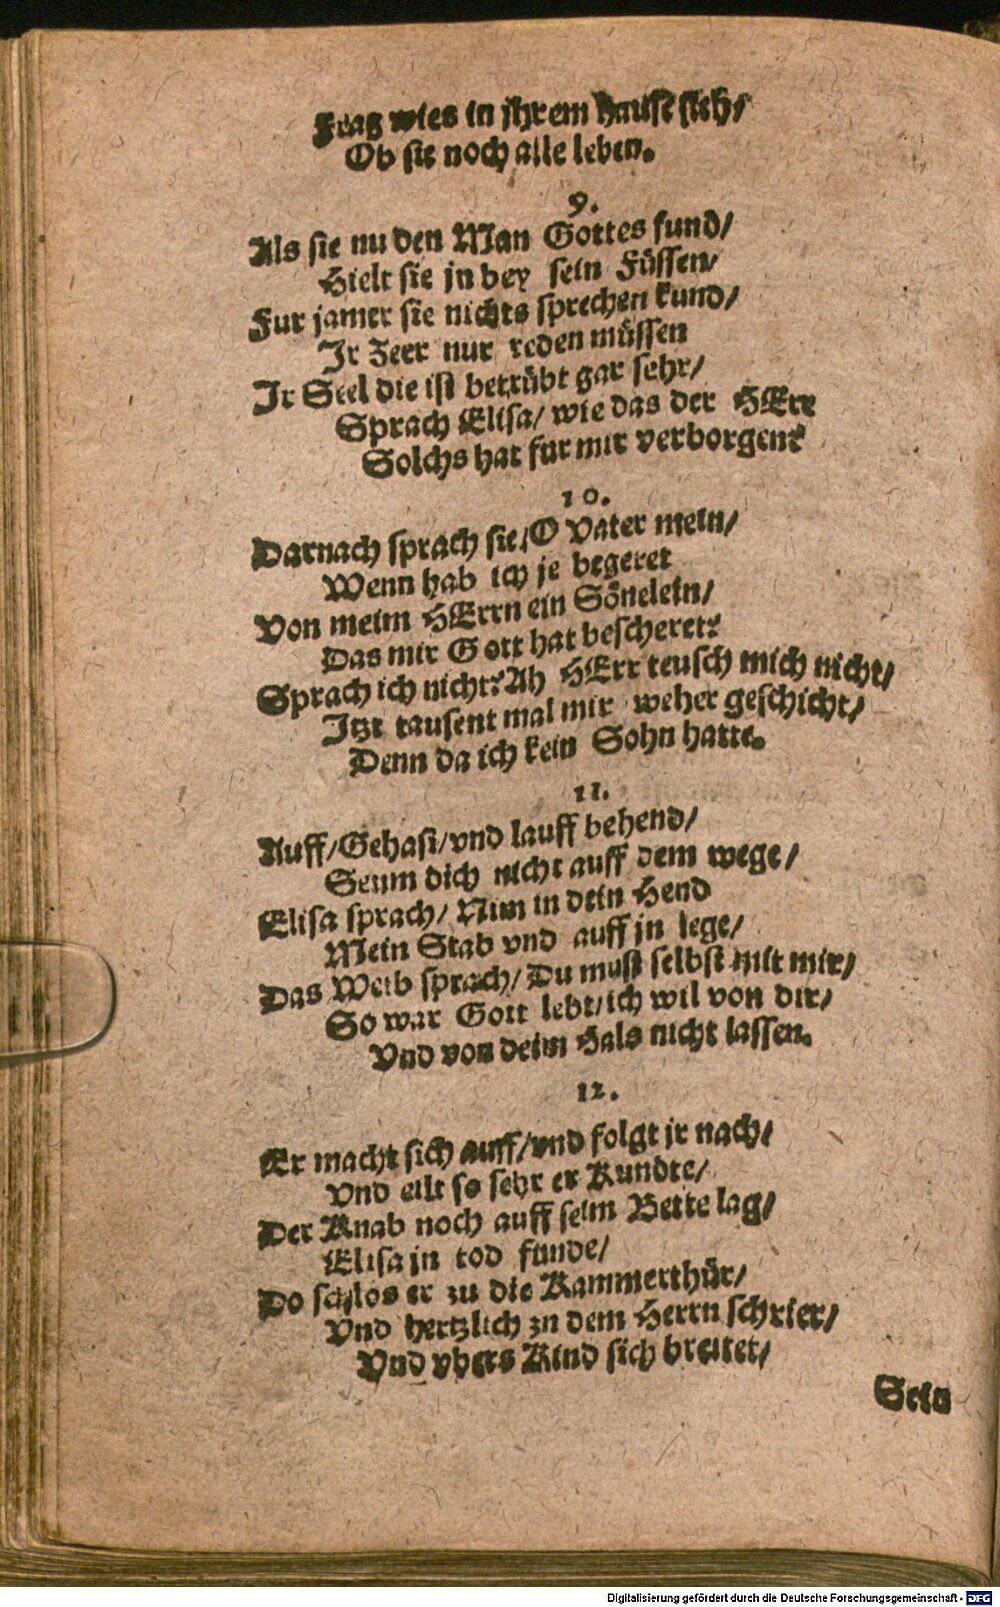 Frag wies in jhrem Hause steh/
Ob sie noch alle leben.
9.
Als sie nu den Man Gottes fund/
Hielt sie jn bey sein Füssen/
Fur jamer sie nichts sprechen kund/
Jr Zeer nur reden müssen
Jr Seel die ist betrübt gar sehr/
Sprach Elisa/ wie das der HErr
Solchs hat fur mir verborgen?
10.
Darnach sprach sie/ O Vater mein/
Wenn hab ich je begeret
Von meim HErrn ein Sönelein/
Das mir Gott hat bescheret?
Sprach ich nicht? Ah HErr teusch mich nicht/
Itzt tausent mal mir weher geschicht/
Denn da ich kein Sohn hatte.
11.
Auff/ Gehasi/ vnd lauff behend/
Seum dich nicht auff dem wege/
Elisa sprach/ Nim in dein Hend
Mein Stab vnd auff jn lege/
Das Weib sprach/ Du must selbst mit mir/
So war Gott lebt/ ich wil von dir/
Vnd von deim Hals nicht lassen.
12.
Er macht sich auff/ vnd folgt jr nach/
Vnd eilt so sehr er kundte/
Der Knab noch auff seim Bette lag/
Elisa jn tod funde/
Do schlos er zu die Kammerthür/
Vnd hertzlich zu dem Herrn schrier/
Vnd vbers Kind sich breitet/
Sein
Digitalisierung gefördert durch die Deutsche Forschungsgemeinschaft - DFG